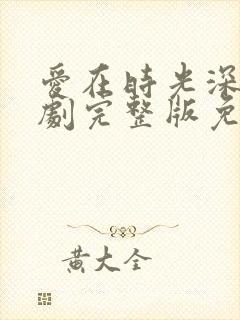 愛在時光深
劇完整版免
黄大全